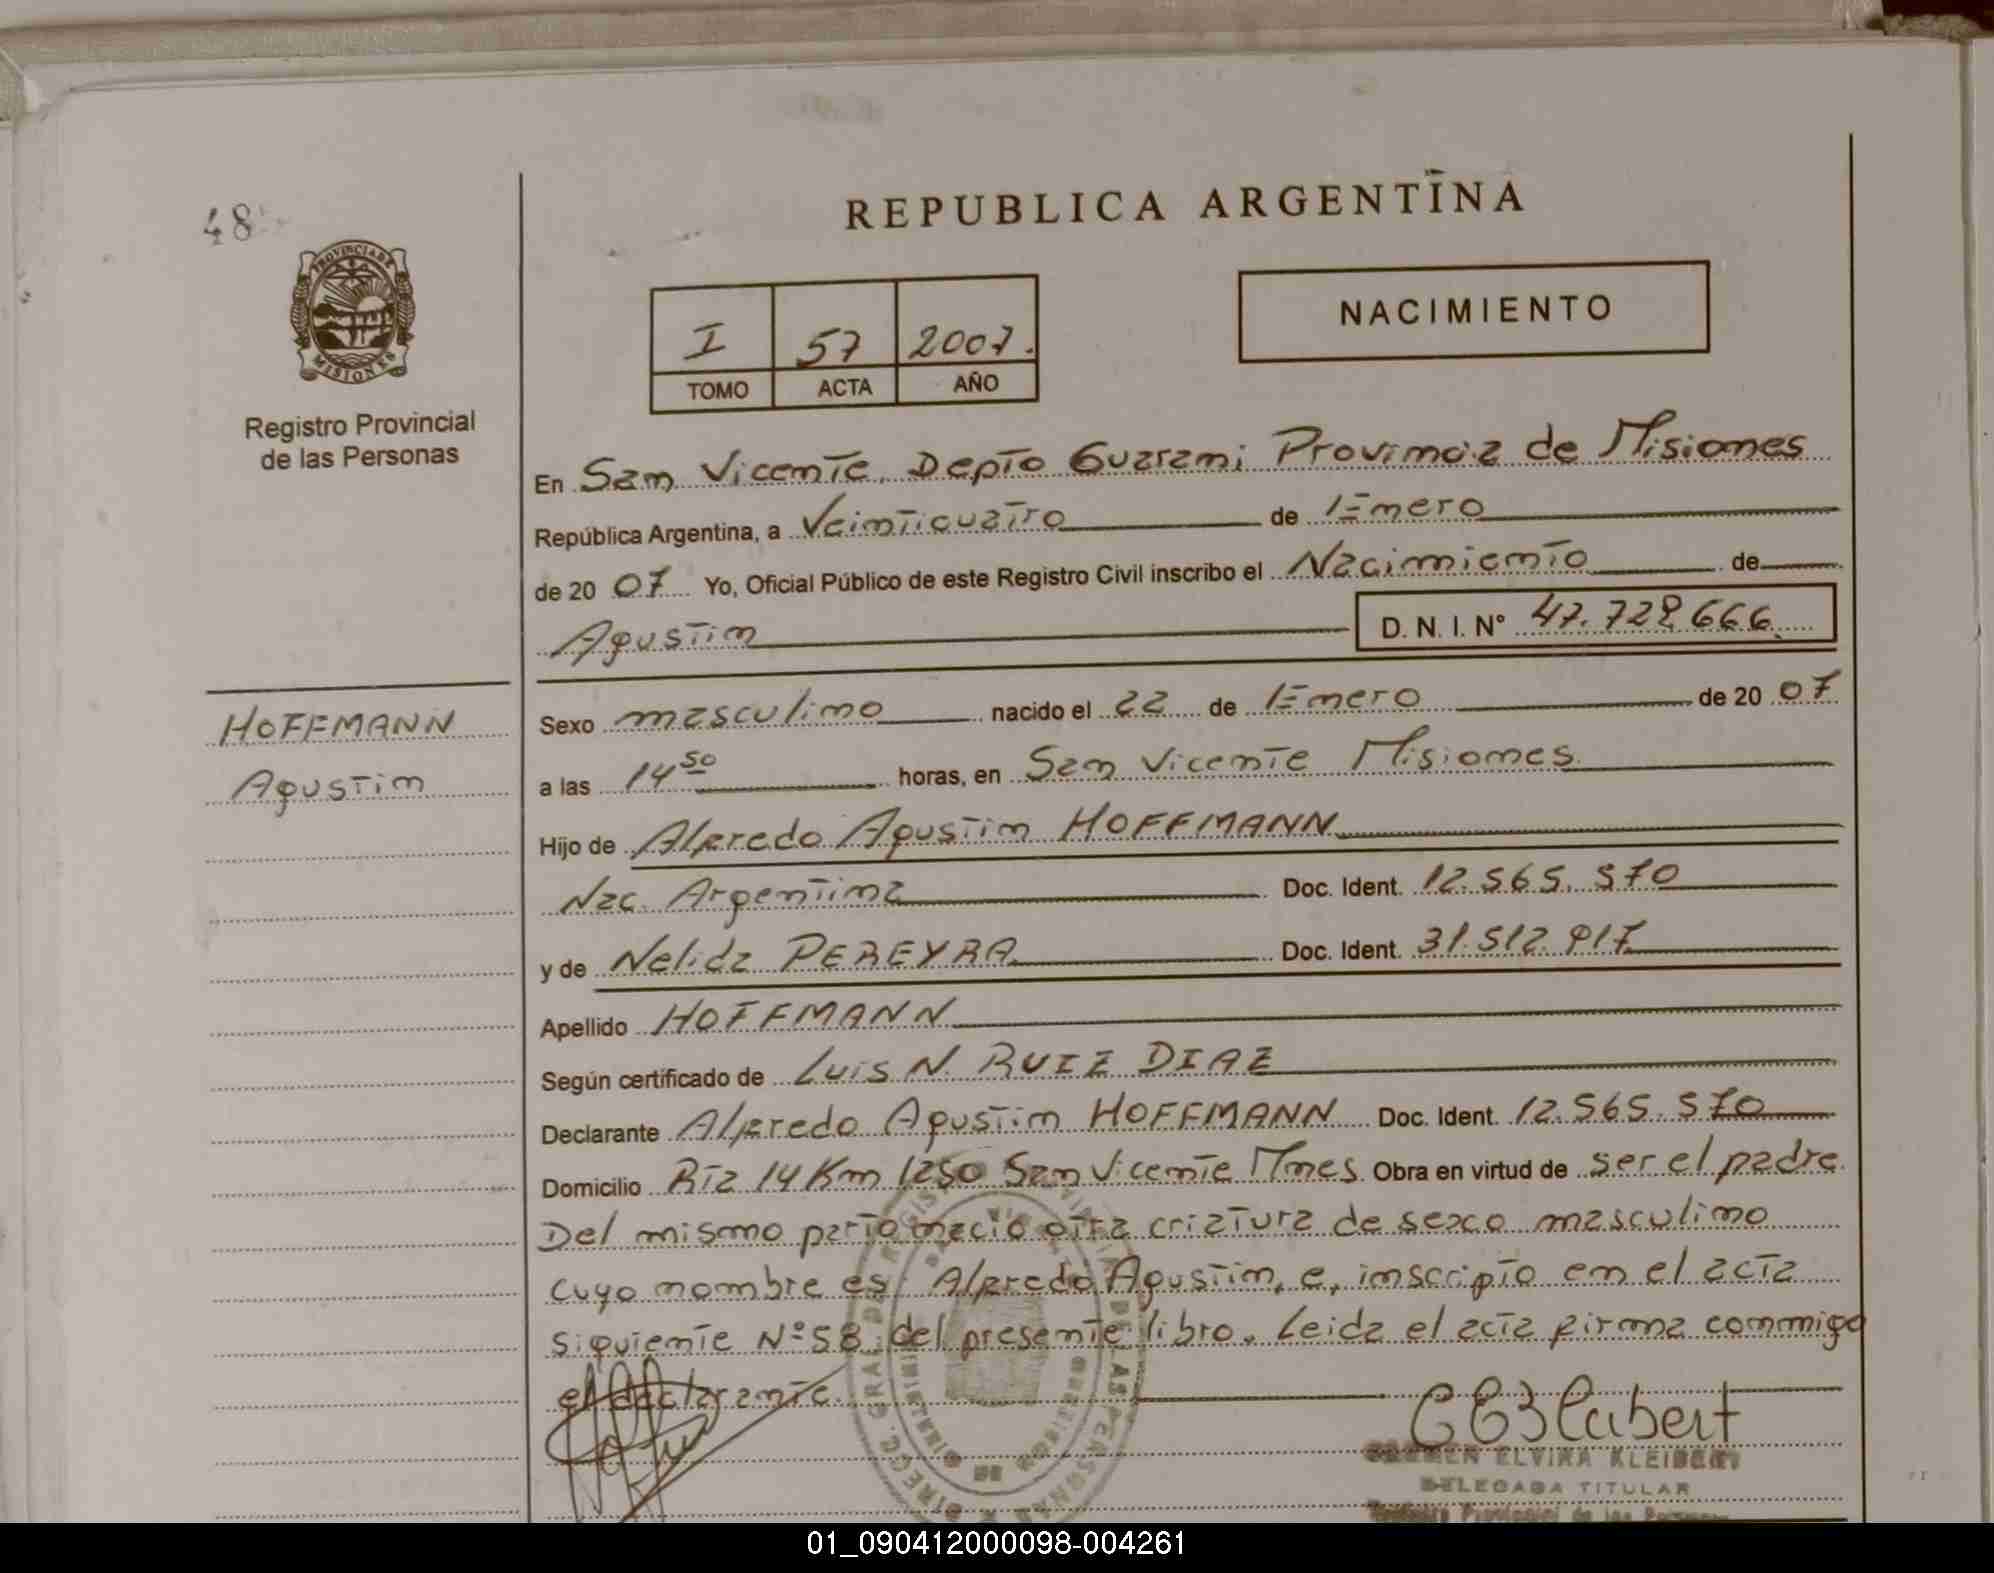 48
REPUBLICA ARGENTINA
PROVINCIA DE
MISIONES
Registro Provincial
de las Personas
I 57 2007.
TOMO ACTA AÑO
NACIMIENTO
En San Vicente, Depto Guarani Provincia de Misiones
República Argentina, a Veinticuatro de Enero
de 20 07 Yo, Oficial Público de este Registro Civil inscribo el Nacimiento de
Agustin D. N. I. N° 47.728.666
HOFFMANN
Agustin
Sexo masculino nacido el 22 de Enero de 20 07
a las 14 50 horas, en San Vicente Misiones
Hijo de Alfredo Agustin HOFFMANN
Nac. Argentina Doc. Ident. 12.565.570
y de Nelida PEREYRA Doc. Ident. 31.512.917
Apellido HOFFMANN
Según certificado de Luis N. RUIZ DIAZ
Declarante Alfredo Agustin HOFFMANN Doc. Ident. 12.565.570
Domicilio Rta 14 Km 1250 San Vicente Mnes Obra en virtud de ser el padre
Del mismo parto nacio otra criatura de sexo masculino
cuyo nombre es Alfredo Agustin, e, inscripto en el acta
siguiente Nº 58 del presente libro. Leida el acta firma conmigo
el declarante.
CARMEN ELVIRA KLEIBERT
DELEGADA TITULAR
Registro Provincial de las Personas
01_090412000098-004261